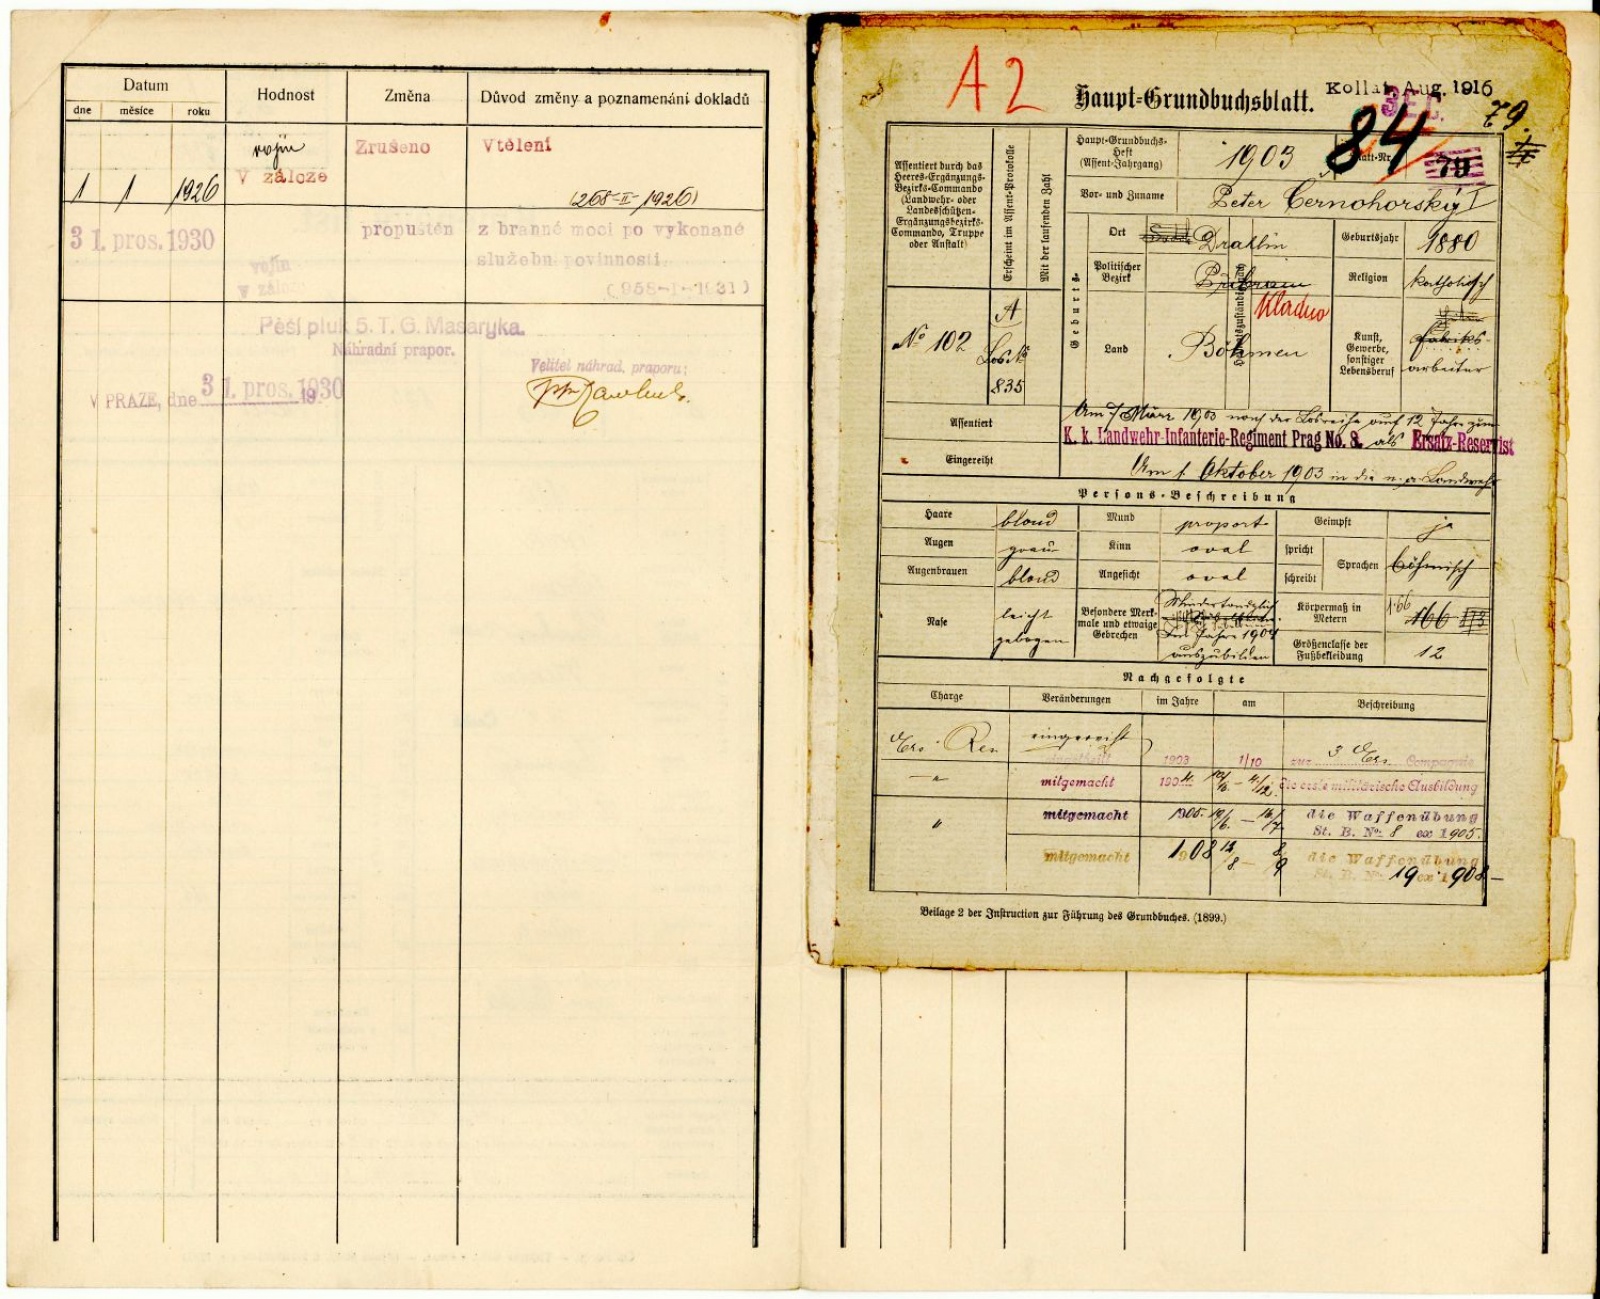 Datum
dne měsíce roku
Hodnost
Změna
Důvod změny a poznamenání dokladů
vojín
V záloze
Zrušeno
Vtělení
1 1 1926
(268-II-1926)
31. pros. 1930
vojín
v záloze
propuštěn
z branné moci po vykonané
služební povinnosti.
(958-I-1931)
Pěší pluk 5. T. G. Masaryka.
Náhradní prapor.
V PRAZE, dne 31. pros. 1930
19
Velitel náhrad. praporu:
A 2
Haupt-Grundbuchsblatt.
Kollat. Aug. 1916
84
79.
79
Assentiert durch das
Heeres-Ergänzungs-
Bezirks-Commando
(Landwehr- oder
Landesschützen-
Ergänzungsbezirks-
Commando, Truppe
oder Anstalt)
Erscheint im Assent-Protokolle
Mit der laufenden Zahl
Haupt-Grundbuchs-
Heft
(Assent-Jahrgang)
1903
Blatt-Nr.
Vor- und Zuname
Peter Černohorský I
Geburts-
Ort
Drahlin
Geburtsjahr
1880
Politischer
Bezirk
Přibram
Kladno
Religion
katholisch
Land
Böhmen
Kunst,
Gewerbe,
sonstiger
Lebensberuf
Fabriks-
arbeiter
No 102
A
Los No
835
Assentiert
Am 7 März 1903 nach der Losreihe auf 12 Jahre zum
K. k. Landwehr-Infanterie-Regiment Prag No. 8. als Ersatz-Reservist
Eingereiht
Am 1. Oktober 1903 in die n. a. Landwehr
Persons-Beschreibung
Haare
blond
Mund
proport.
Geimpft
ja
Augen
grau
Kinn
oval
spricht
schreibt
Sprachen
böhmisch
Augenbrauen
blond
Angesicht
oval
Nase
leicht
gebogen
Besondere Merk-
male und etwaige
Gebrechen
Mindertauglich
Im Jahre 1904
auszubilden
Körpermaß in
Metern
1·66
166
Größenclasse der
Fußbekleidung
12
Nachgefolgte
Charge
Veränderungen
im Jahre
am
Beschreibung
Ers. Res. eingereiht 1903 1/10 zur 3 Ers. Compagnie
" mitgemacht 1904 die erste militärische Ausbildung
" mitgemacht 1905. die Waffenübung
St. B. No. 8 ex 1905.
mitgemacht 1908 die Waffenübung
St. B. No. 19 ex 1908
Beilage 2 der Instruction zur Führung des Grundbuches. (1899.)